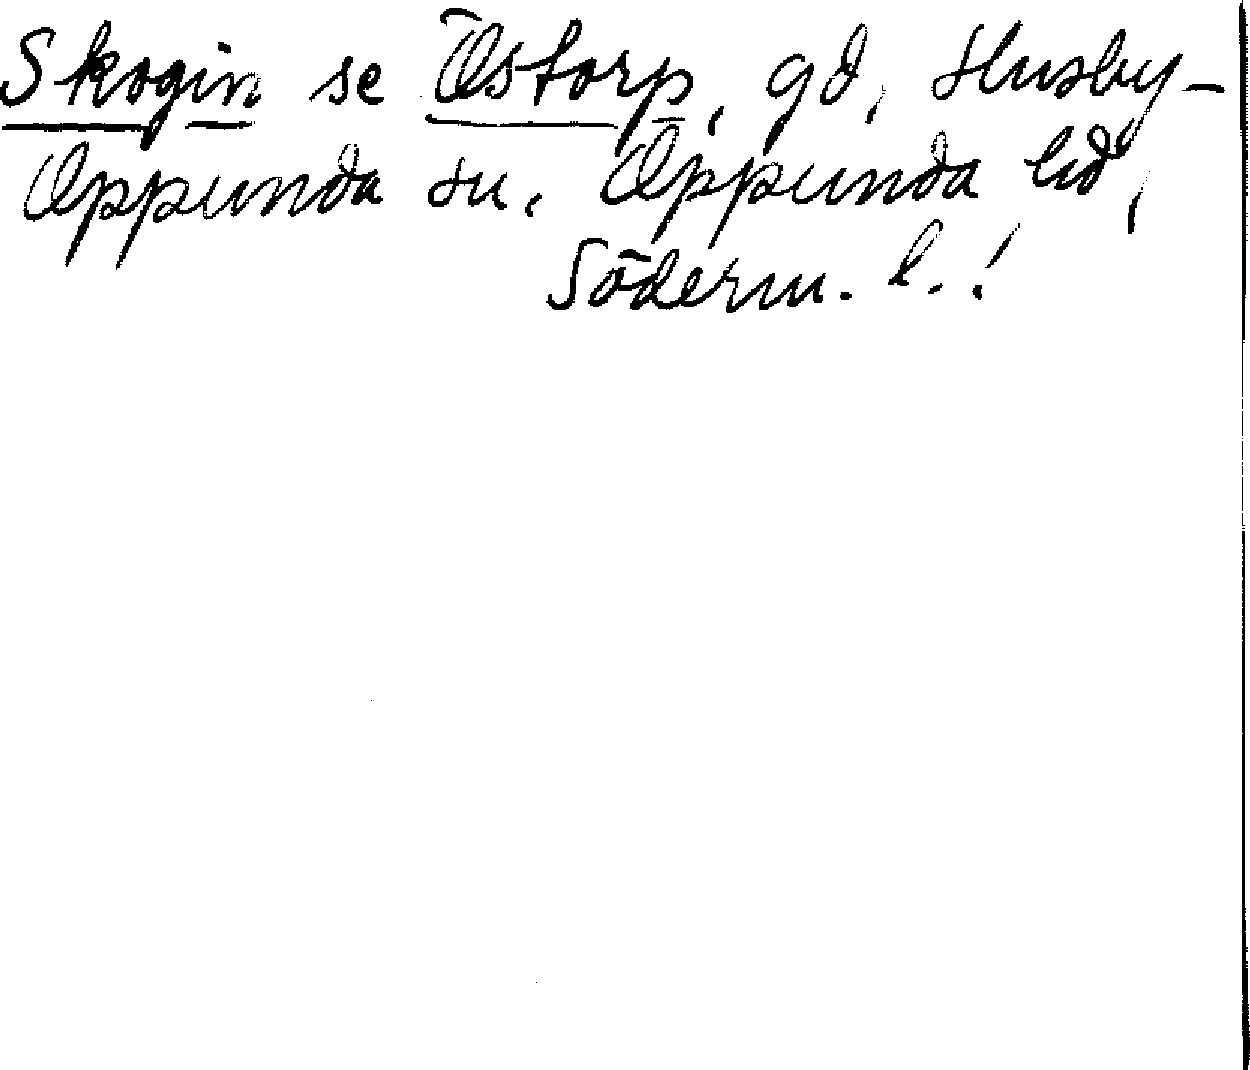 Skogin se Östorp, gd, Husby-
Oppunda sn. Oppunda hd,
Söderm. l. !